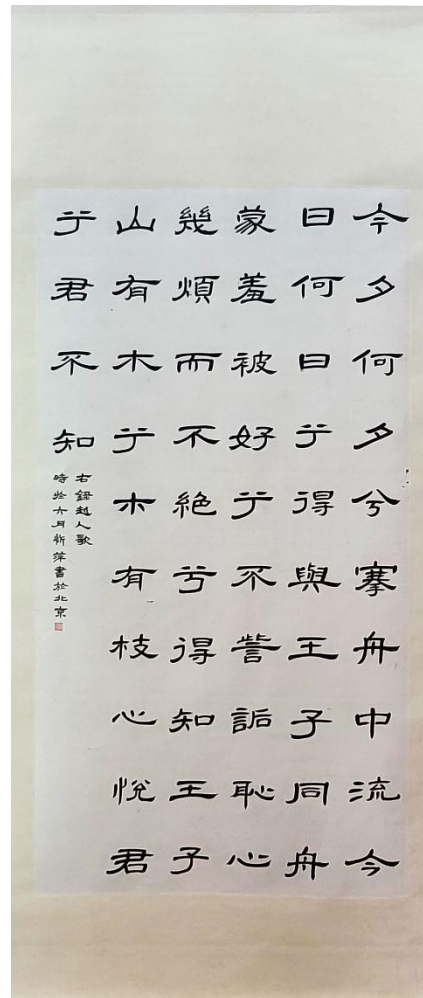 今夕何夕兮搴舟中流今
日何日兮得與王子同舟
蒙羞被好兮不訾詬恥心
幾煩而不絕兮得知王子
山有木兮木有枝心悅君
兮君不知
右錄越人歌
時於六月萍書於北京